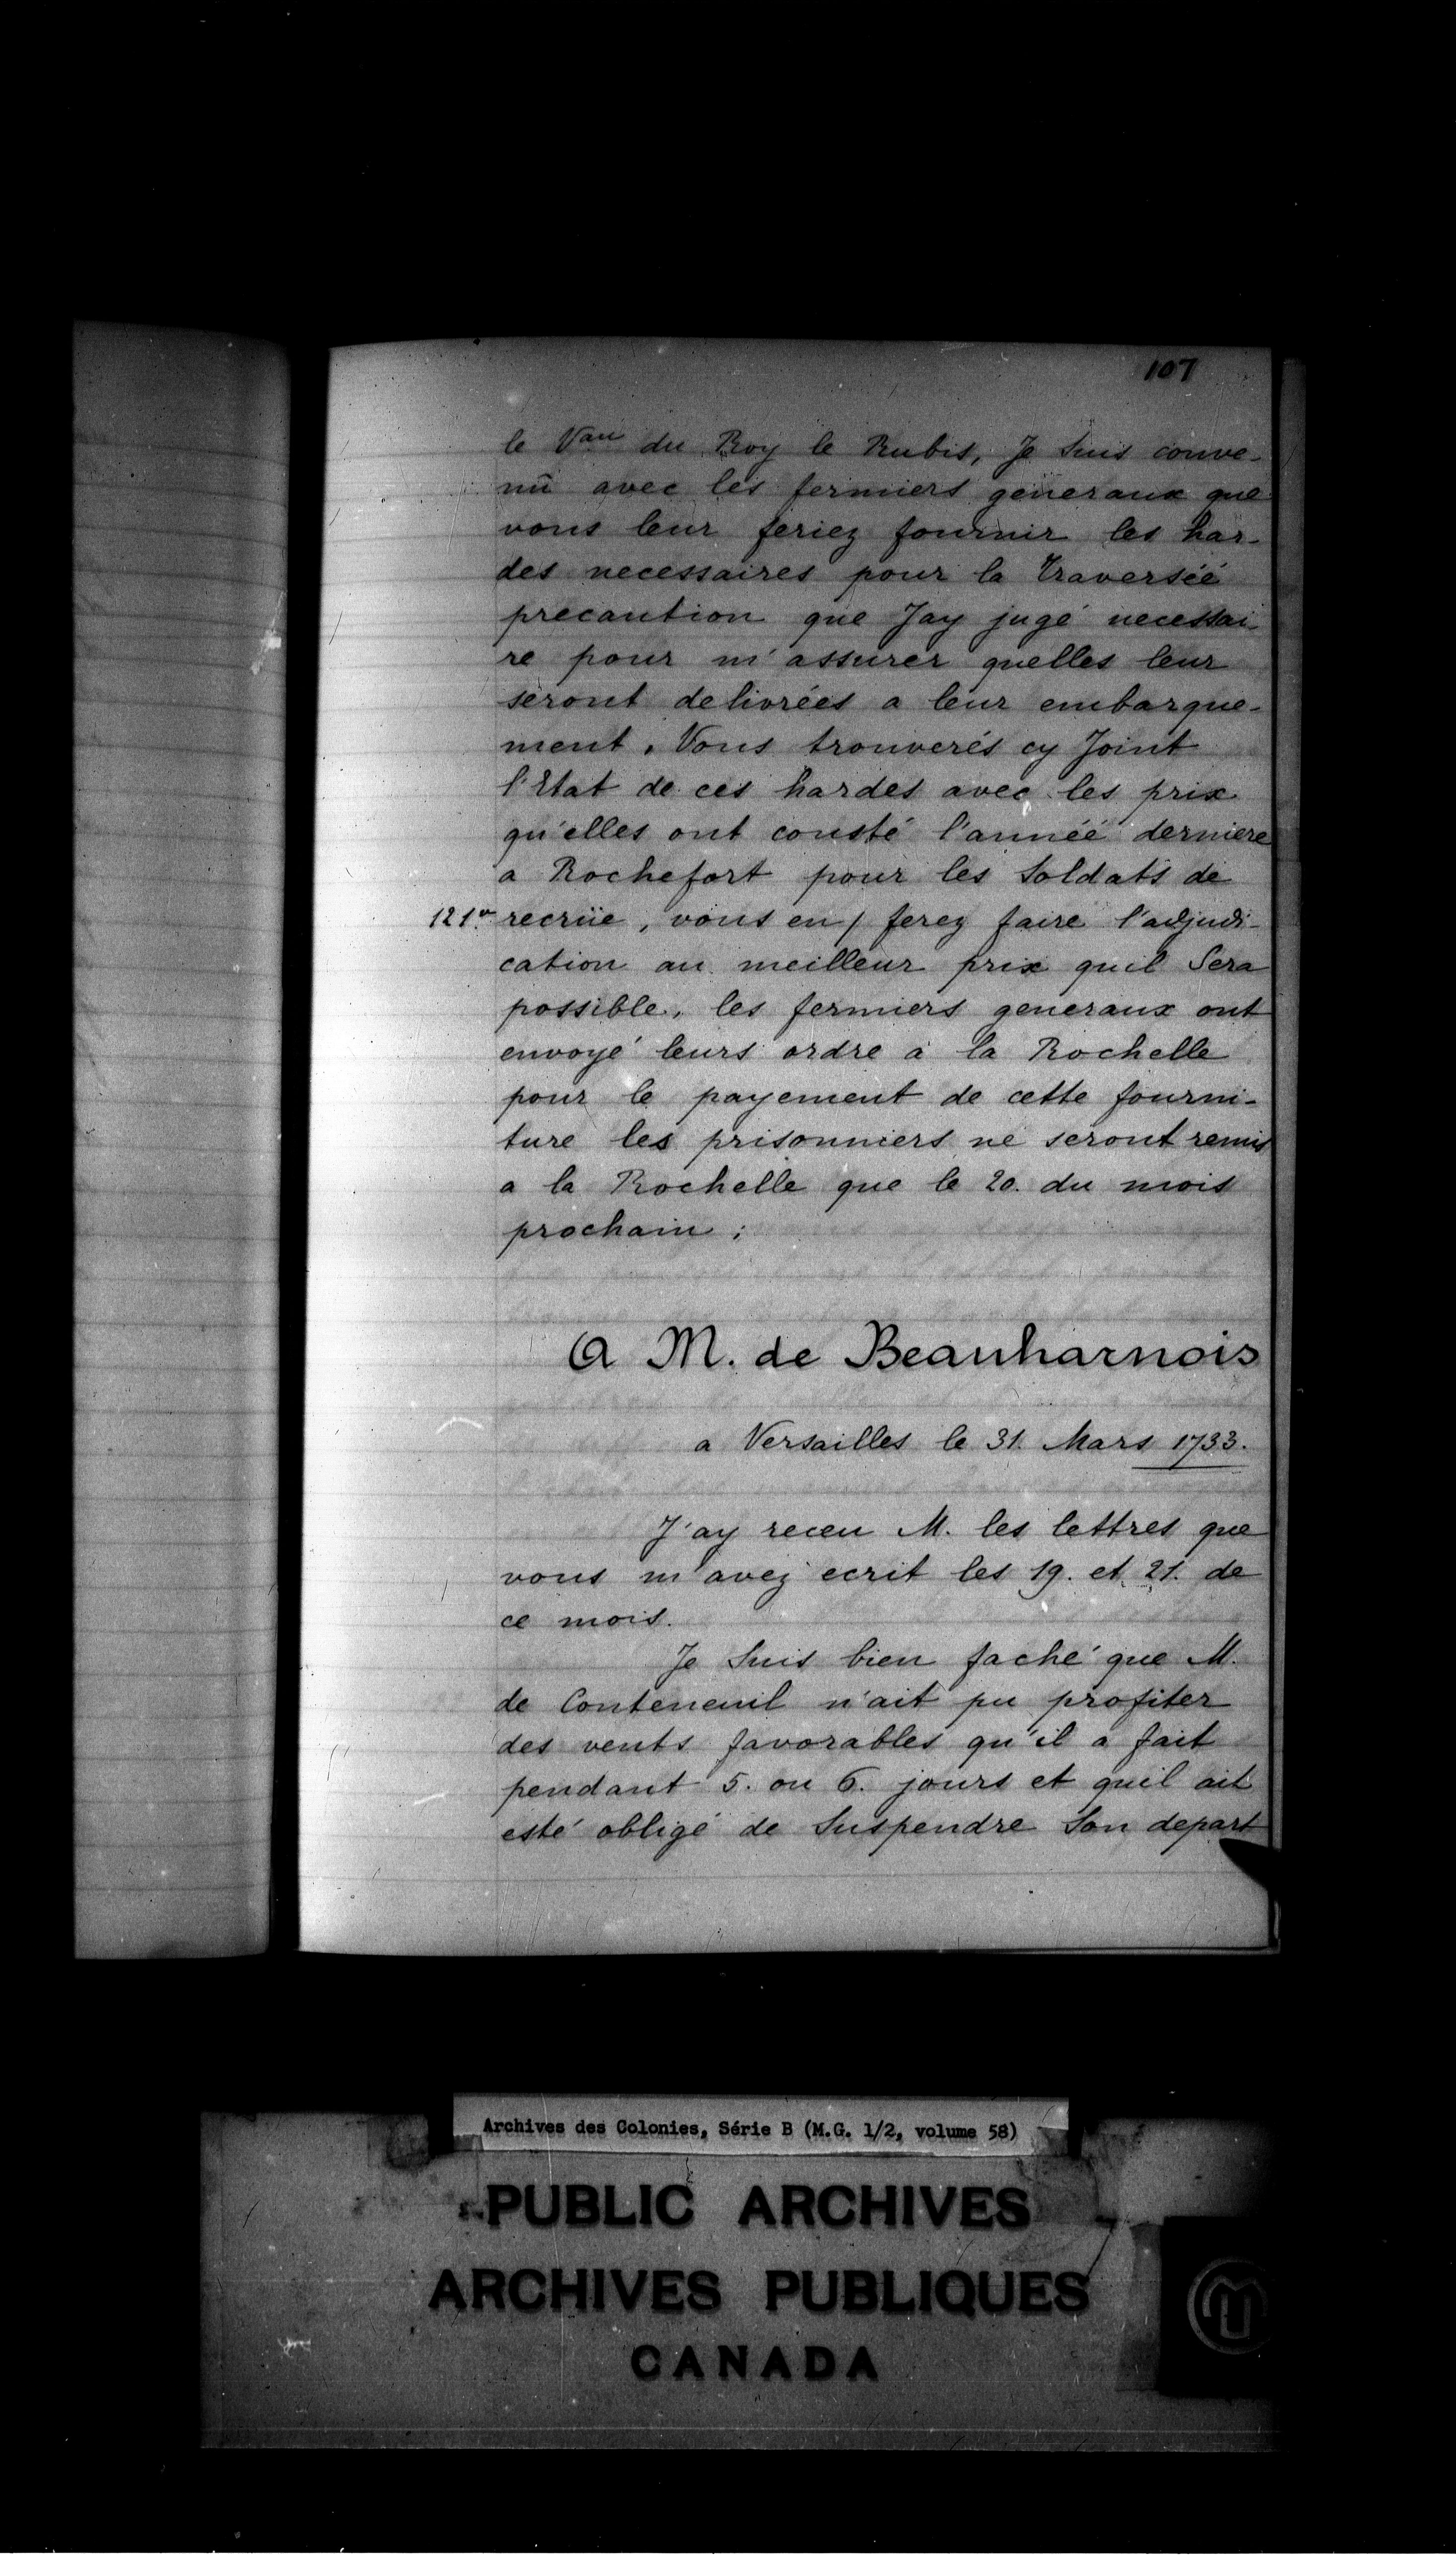 107
le Vau du Roy le Rubis, Je Suis conve-
nû avec les fermiers generaux que
vous leur feriez fournir les har-
des necessaires pour la traverséé
precaution que Jay jugé necessai-
re pour m'assurer quelles leur
seront delivrées a leur embarque-
ment. Vous trouverés cy Joint
l'Etat de ces hardes avec les prix
qu'elles ont cousté l'annéé derniere
a Rochefort pour les Soldats de
121v. recrüe, vous en / ferez faire l'adjudi-
cation au meilleur prix quil Sera
possible, les fermiers generaux ont
envoyé leurs ordre a la Rochelle
pour le payement de cette fourni-
ture les prisonniers ne seront remis
a la Rochelle que le 20. du mois
prochain;
A M. de Beauharnois
a Versailles le 31. Mars 1733.
J'ay receu M. les lettres que
vous m'avez ecrit les 19. et 21. de
ce mois.
Je Suis bien faché que M.
de Conteneuil n'ait pu profiter
des vents favorables qu'il a fait
pendant 5. ou 6. jours et quil ait
esté obligé de Suspendre Son depart
Archives des Colonies, Série B (M.G. 1/2, volume 58)
PUBLIC ARCHIVES
ARCHIVES PUBLIQUES
CANADA